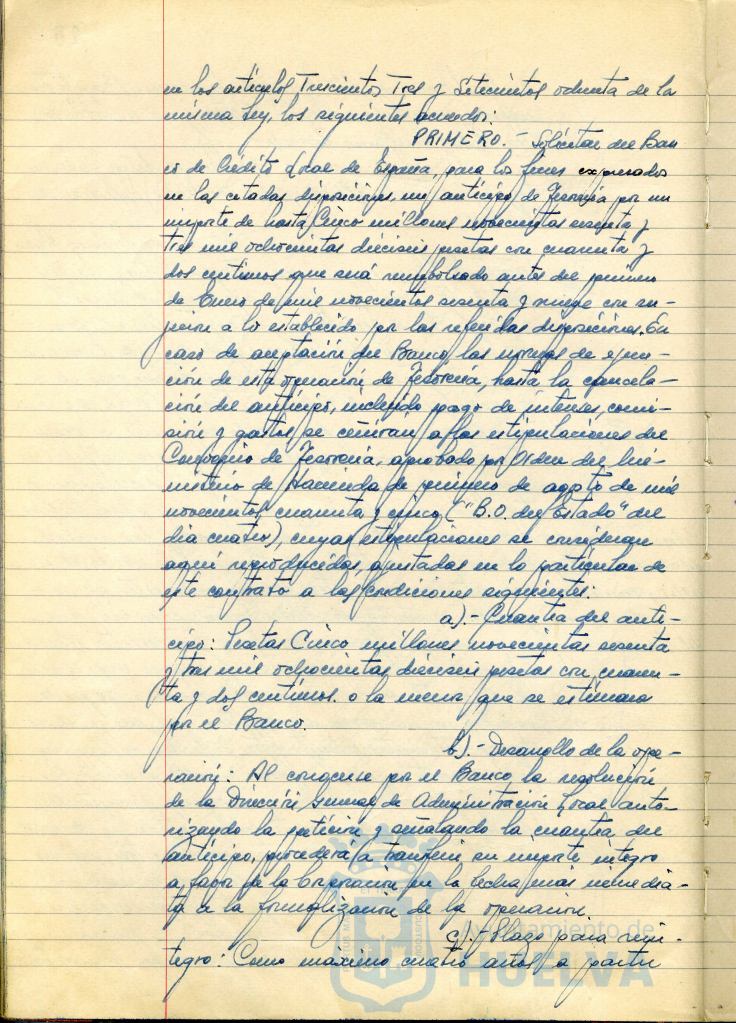 en los artículos Trescientos Tres y Setecientos ochenta de la
misma Ley, los siguientes acuerdos:
PRIMERO.- Solicitar del Ban
co de Crédito Local de España, para los fines expresados
en las citadas disposiciones, un anticipo de Tesorería por un
importe de hasta Cinco millones novecientas sesenta y
tres mil ochocientas dieciseis pesetas con cuarenta y
dos céntimos que será reembolsado antes del primero
de Enero de mil novecientos sesenta y nueve con su-
jeción a lo establecido por las referidas disposiciones. En
caso de aceptación del Banco, las normas de ejecu-
ción de esta operación de Tesorería, hasta la cancela-
ción del anticipo, incluido pago de intereses, comi-
sión y gastos se ceñirán a las estipulaciones del
Convenio de Tesorería, aprobado por Orden del Mi-
nisterio de Hacienda de primero de agosto de mil
novecientos cuarenta y cinco ("B.O. del Estado" del
dia cuatro), cuyas estipulaciones se consideran
aquí reproducidas, ajustadas en lo particular de
este contrato a las condiciones siguientes:
a).- Cuantía del anti-
cipo: Pesetas Cinco millones novecientas sesenta
y tres mil ochocientas dieciseis pesetas con cuaren-
ta y dos céntimos. o la menor que se estimara
por el Banco.
b).- Desarrollo de la ope-
ración: Al conocerse por el Banco la resolución
de la Dirección General de Administración Local auto-
rizando la petición y señalando la cuantía del
anticipo, procederá a transferir su importe íntegro
a favor de la Corporación en la fecha más inmedia-
ta a la formalización de la operación.
c).- Plazo para rein-
tegro: Como máximo cuatro años a partir
Ayuntamiento de
HUELVA